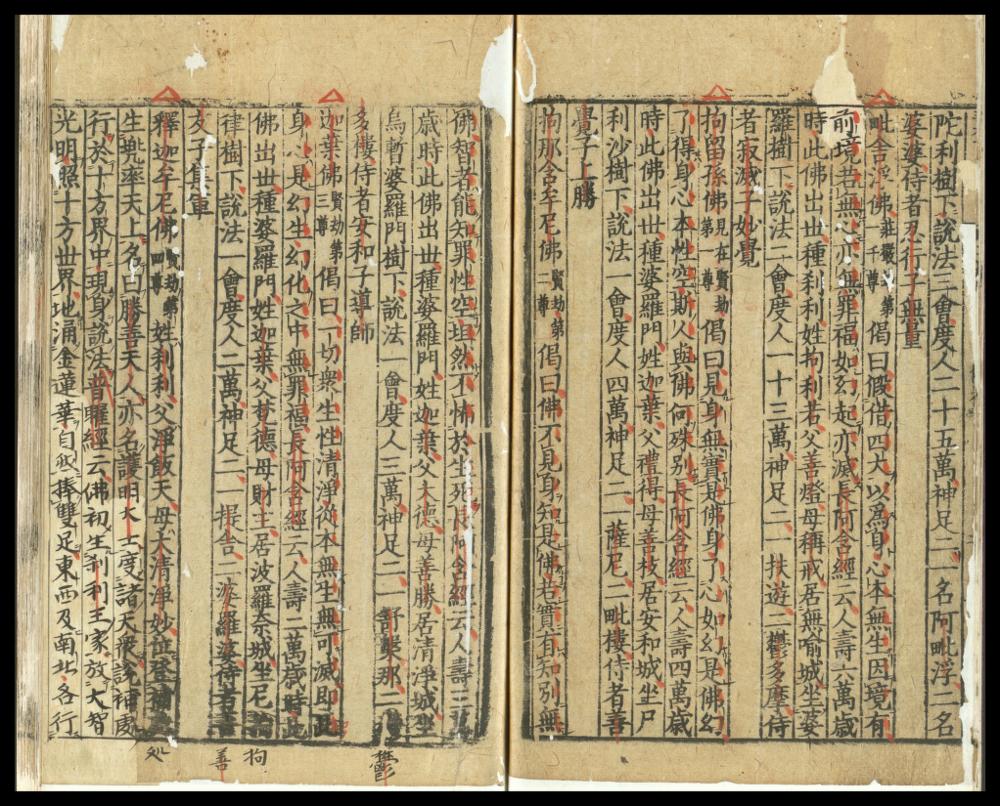 陀利樹下說法三會度人二十五萬神足二一名阿毗浮二名
婆婆侍者忍行子無量
毗舍浮佛莊嚴劫第一千尊偈曰假借四大以爲身心本無生因境有
前境若無心亦無罪福如幻起亦滅長阿含經云人壽六萬歲
時此佛出世種刹利姓拘利若父善燈母稱戒居無喻城坐婆
羅樹下說法二會度人一十三萬神足二一扶遊二鬱多摩侍
者寂滅子妙覺
拘留孫佛見在賢劫第一尊偈曰見身無實是佛身了心如幻是佛幻
了得身心本性空斯人與佛何殊別長阿含經云人壽四萬歲
時此佛出世種婆羅門姓迦葉父禮得母善枝居安和城坐尸
利沙樹下說法一會度人四萬神足二一薩尼二毗樓侍者善
覺子上勝
拘那含牟尼佛賢劫第二尊偈曰佛不見身知是佛若實有知別無
佛智者能知罪性空坦然不怖於生死長阿含經云人壽三萬
歲時此佛出世種婆羅門姓迦葉父大德母善勝居清淨城坐
烏暫婆羅門樹下說法一會度人三萬神足二一舒槃那二
多樓侍者安和子導師
迦葉佛賢劫第三尊偈曰一切衆生性清淨從本無生無可滅即此
身心是幻生幻化之中無罪福長阿含經云人壽二萬歲時此
佛出世種婆羅門姓迦葉父梵德母財主居波羅奈城坐尼
律樹下說法一會度人二萬神足二一提舍二婆羅婆侍者善
友子集軍
釋迦牟尼佛賢劫第四尊姓刹利父淨飯天母大清淨妙位登補
生兜率天上名曰勝善天人亦名護明大士度諸天衆說補處
行於十方界中現身說法普曜經云佛初生刹利王家放大智
光明照十方世界地涌金蓮華自然捧雙足東西及南北各行
鬱
拘
善
处